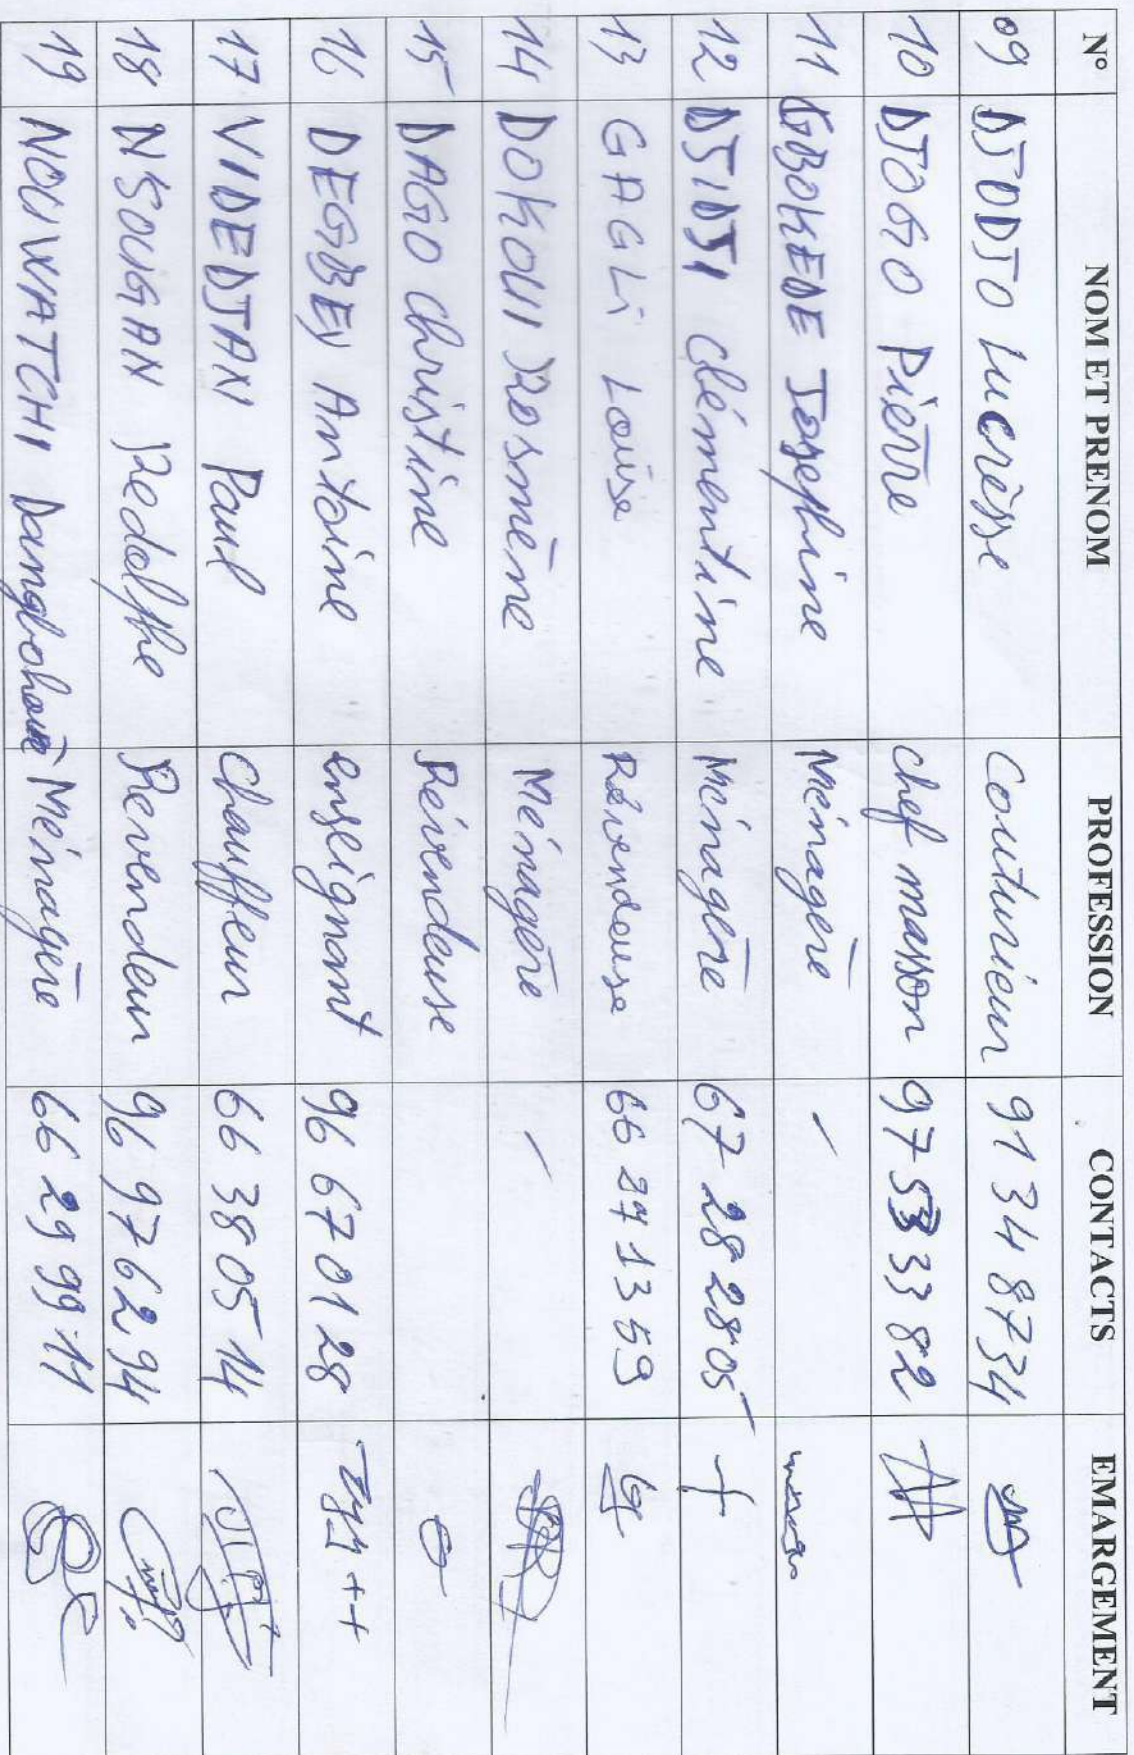 N° NOM ET PRENOM PROFESSION CONTACTS EMARGEMENT
09 DJODJO Lucrèsse Couturieur 91 34 87 34
10 DJOGO Pierre chef masson 97 53 33 82
11 GBOKEDE Josephine Ménagère /
12 DJIDJI Clémentine Ménagère 67 28 28 05
13 GAGLi Louise Révendeuse 66 27 13 59
14 DOKOUI Rosmène Ménagère /
15 DAGO Christine Révendeuse
16 DEGBEY Antoine enseignant 96 67 01 28
17 VIDEDJAN Paul Chauffeur 66 38 05 14
18 N'SOUGAN Redolphe Revendeur 96 97 62 94
19 NOUWATCHI Ménagère 66 29 99 11